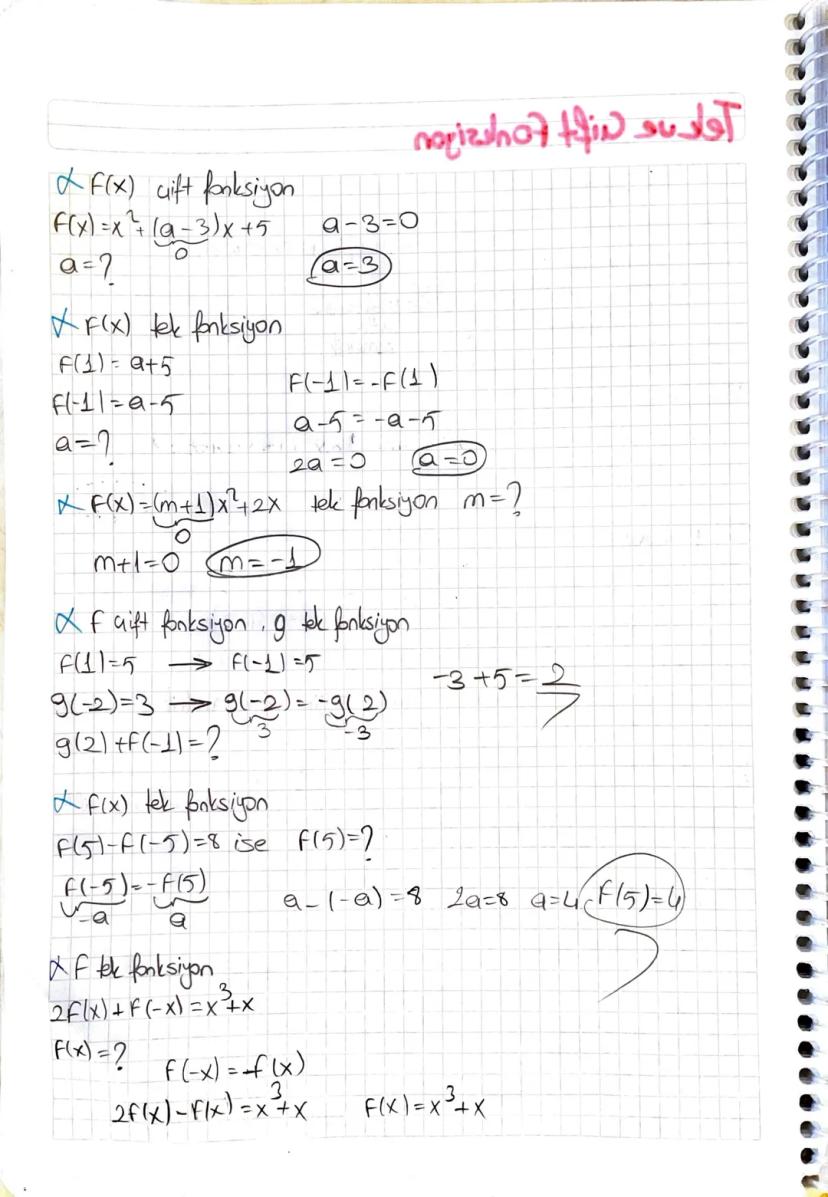 Tek ve Çift Fonksiyon
α f(x) çift fonksiyon
f(x)=x²+(a-3)x+5 a-3=0
0
a=? a=3
α f(x) tek fonksiyon
f(1)=a+5
f(-1)=-f(1)
f(-1)=a-5
a-5=-a-5
a=?
2a=0 a=0
α f(x)=(m+1)x²+2x tek fonksiyon m=?
0
m+1=0 m=-1
α f çift fonksiyon, g tek fonksiyon
f(1)=5 → f(-1)=5
-3+5=2
g(-2)=3 → g(-2)=-g(2)
3 -3
g(2)+f(-1)=?
α f(x) tek fonksiyon
f(5)-f(-5)=8 ise f(5)=?
f(-5)=-f(5)
a-(-a)=8 2a=8 a=4 f(5)=4
-a a
α f tek fonksiyon
2f(x)+f(-x)=x³+x
f(x)=?
f(-x)=-f(x)
2f(x)-f(x)=x³+x f(x)=x³+x